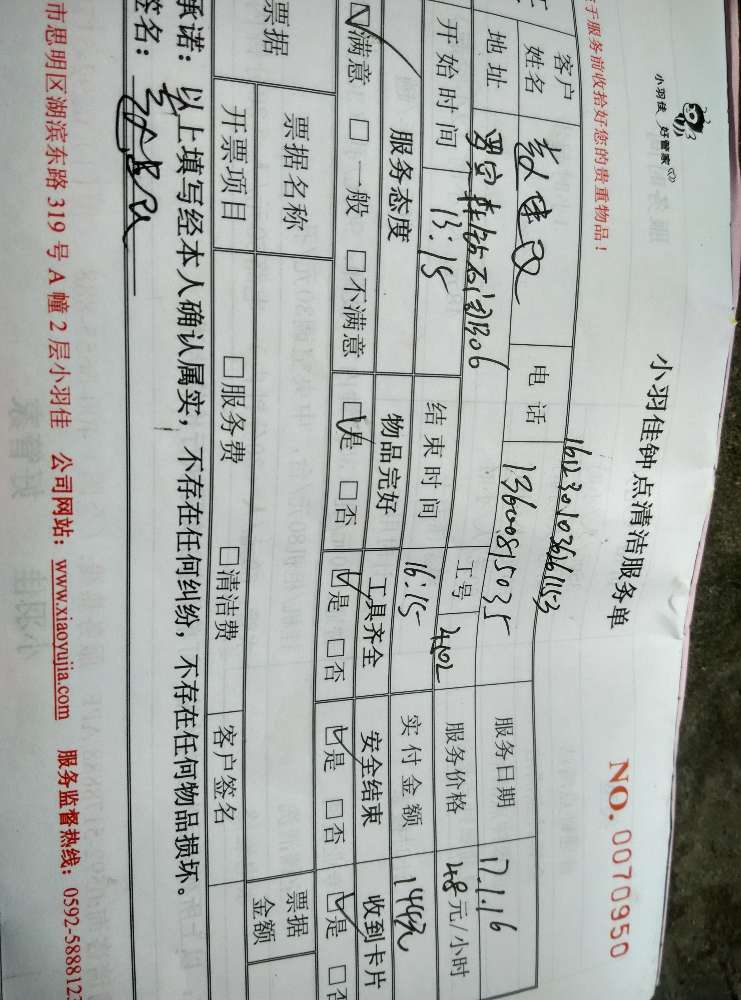 小羽佳 好管家
于服务前收拾好您的贵重物品！
小羽佳钟点清洁服务单
NO. 0070950
客户姓名 电话 13600815035 服务日期 17.1.16
地址 1306 工号 服务价格 48元/小时
开始时间 13:15 结束时间 16:15 实付金额 144元
服务态度 物品完好 工具齐全 安全结束 收到卡片
满意 一般 不满意 是 否 是 否 是 否 是 否
票据 票据名称 票据金额
开票项目 服务费 清洁费 客户签名
承诺：以上填写经本人确认属实，不存在任何纠纷，不存在任何物品损坏。
签名：
市思明区湖滨东路319号A幢2层小羽佳 公司网站：www.xiaoyujia.com 服务监督热线：0592-5888123